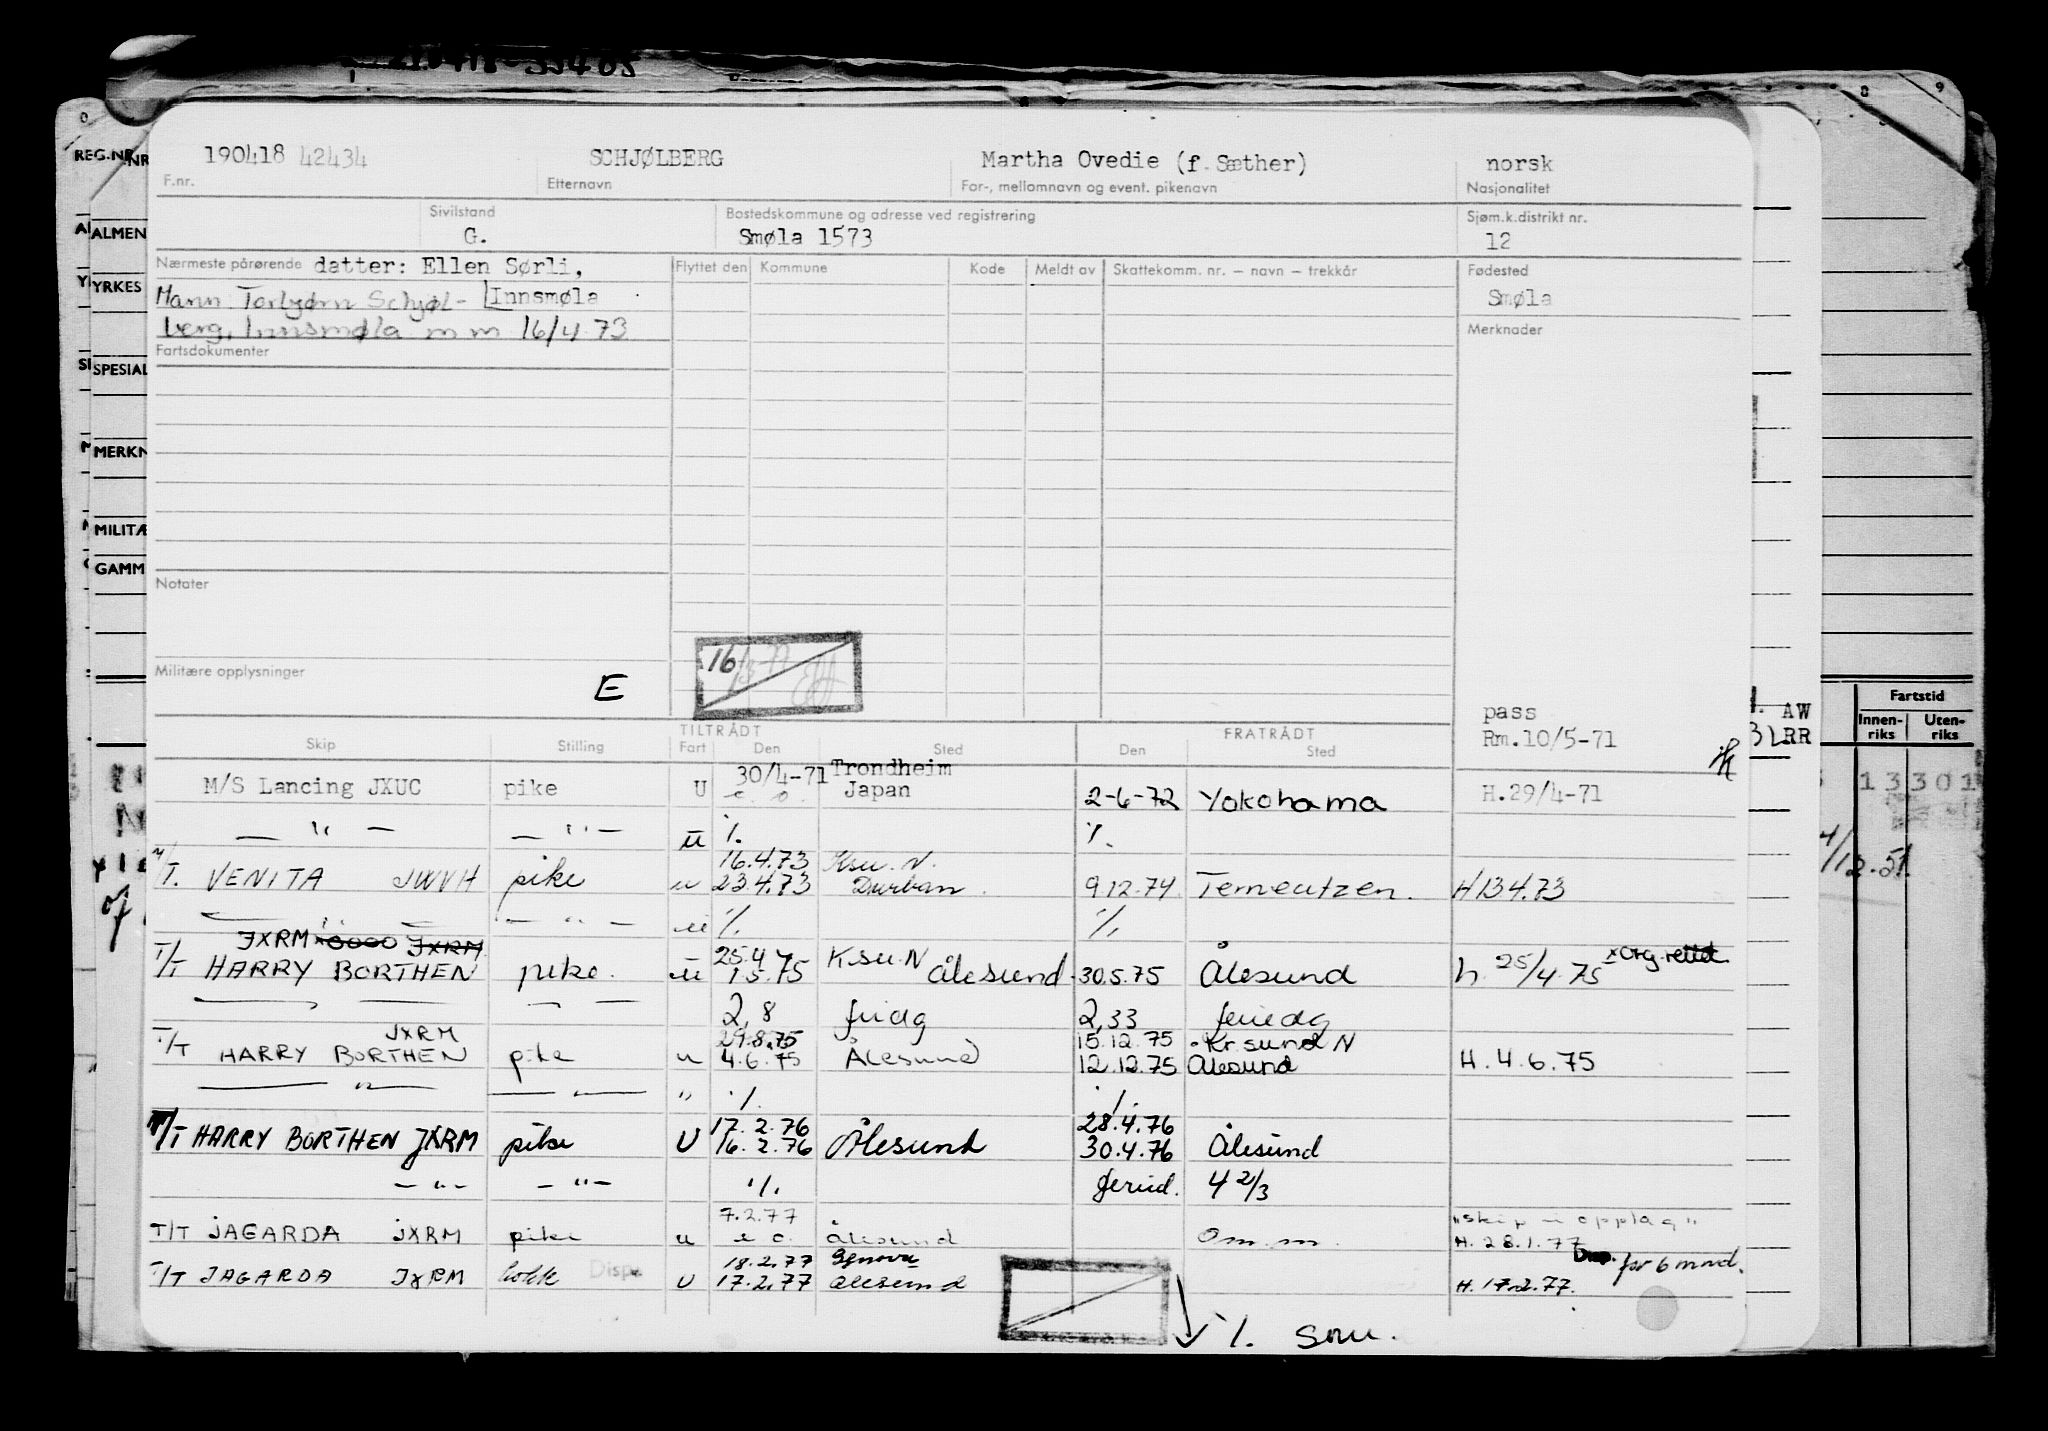 190418 42434 SCHJØLBERG Martha Ovedie (f. Sæther) norsk
F.nr. Etternavn For-, mellomnavn og event. pikenavn Nasjonalitet
Sivilstand Bostedskommune og adresse ved registrering Sjøm.k.distrikt nr.
G. Smøla 1573 12
Nærmeste pårørende datter: Ellen Sørli, Flyttet den Kommune Kode Meldt av Skattekomm. nr. – navn – trekkår Fødested
Mann Torbjørn Schjøl- Innsmøla Smøla
berg, Innsmøla m m 16/4 73 Merknader
Fartsdokumenter
Notater
Militære opplysninger E 16
pass
Rm.10/5-71
TILTRÅDT FRATRÅDT
Skip Stilling Fart Den Sted Den Sted
30/4-71 Trondheim
M/S Lancing JXUC pike U Japan 2-6-72 Yokohama H.29/4-71
— " — — " — u ./. ./.
16.4.73 Ksu. N.
M/T. VENITA JWVH pike u 23.4.73 Durban. 9.12.74 Terneutzen. H 13.4.73
— " — — " — u ./. ./.
JXRM JXRM 25.4 Ksu. N x Org. rettet
T/T HARRY BORTHEN pike. u 1.5.75 Ålesund. 30.5.75 Ålesund h. 25/4.75
2,8 fridg 2,33 feriedg
JXRM 29.8.75 15.12.75 Kr.sund N
T/T HARRY BORTHEN pike u 4.6.75 Ålesund 12.12.75 Ålesund H. 4.6.75
— " — — " — " ./. ./.
17.2.76 28.4.76
T/T HARRY BORTHEN JXRM pike U 16.2.76 Ålesund 30.4.76 Ålesund
— " — — " — ./. feried. 4 2/3
7.2.77 "skip i opplag"
T/T JAGARDA JXRM pike u e.o. Ålesund Om.m. H. 28.1.77
18.2.77 Genova Disp. for 6 mnd.
T/T JAGARDA JXRM kokk Disp. U 17.2.77 Ålesund H. 17.2.77.
./. snu.
REG.NR.
ALMEN
YRKES
SPESIAL
MERKN
MILITÆ
GAMM
Fartstid
Innen-riks Uten-riks
AW
RR
13301